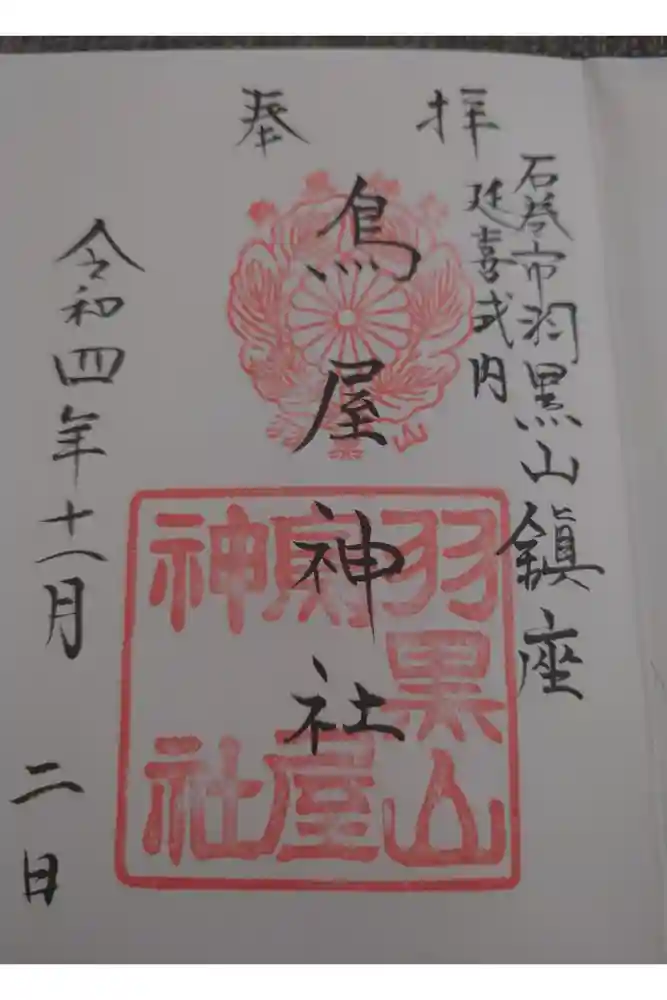 奉拝
石巻市羽黒山鎮座
延喜式内
鳥屋神社
令和四年十一月二日
羽黒山
鳥屋
神社